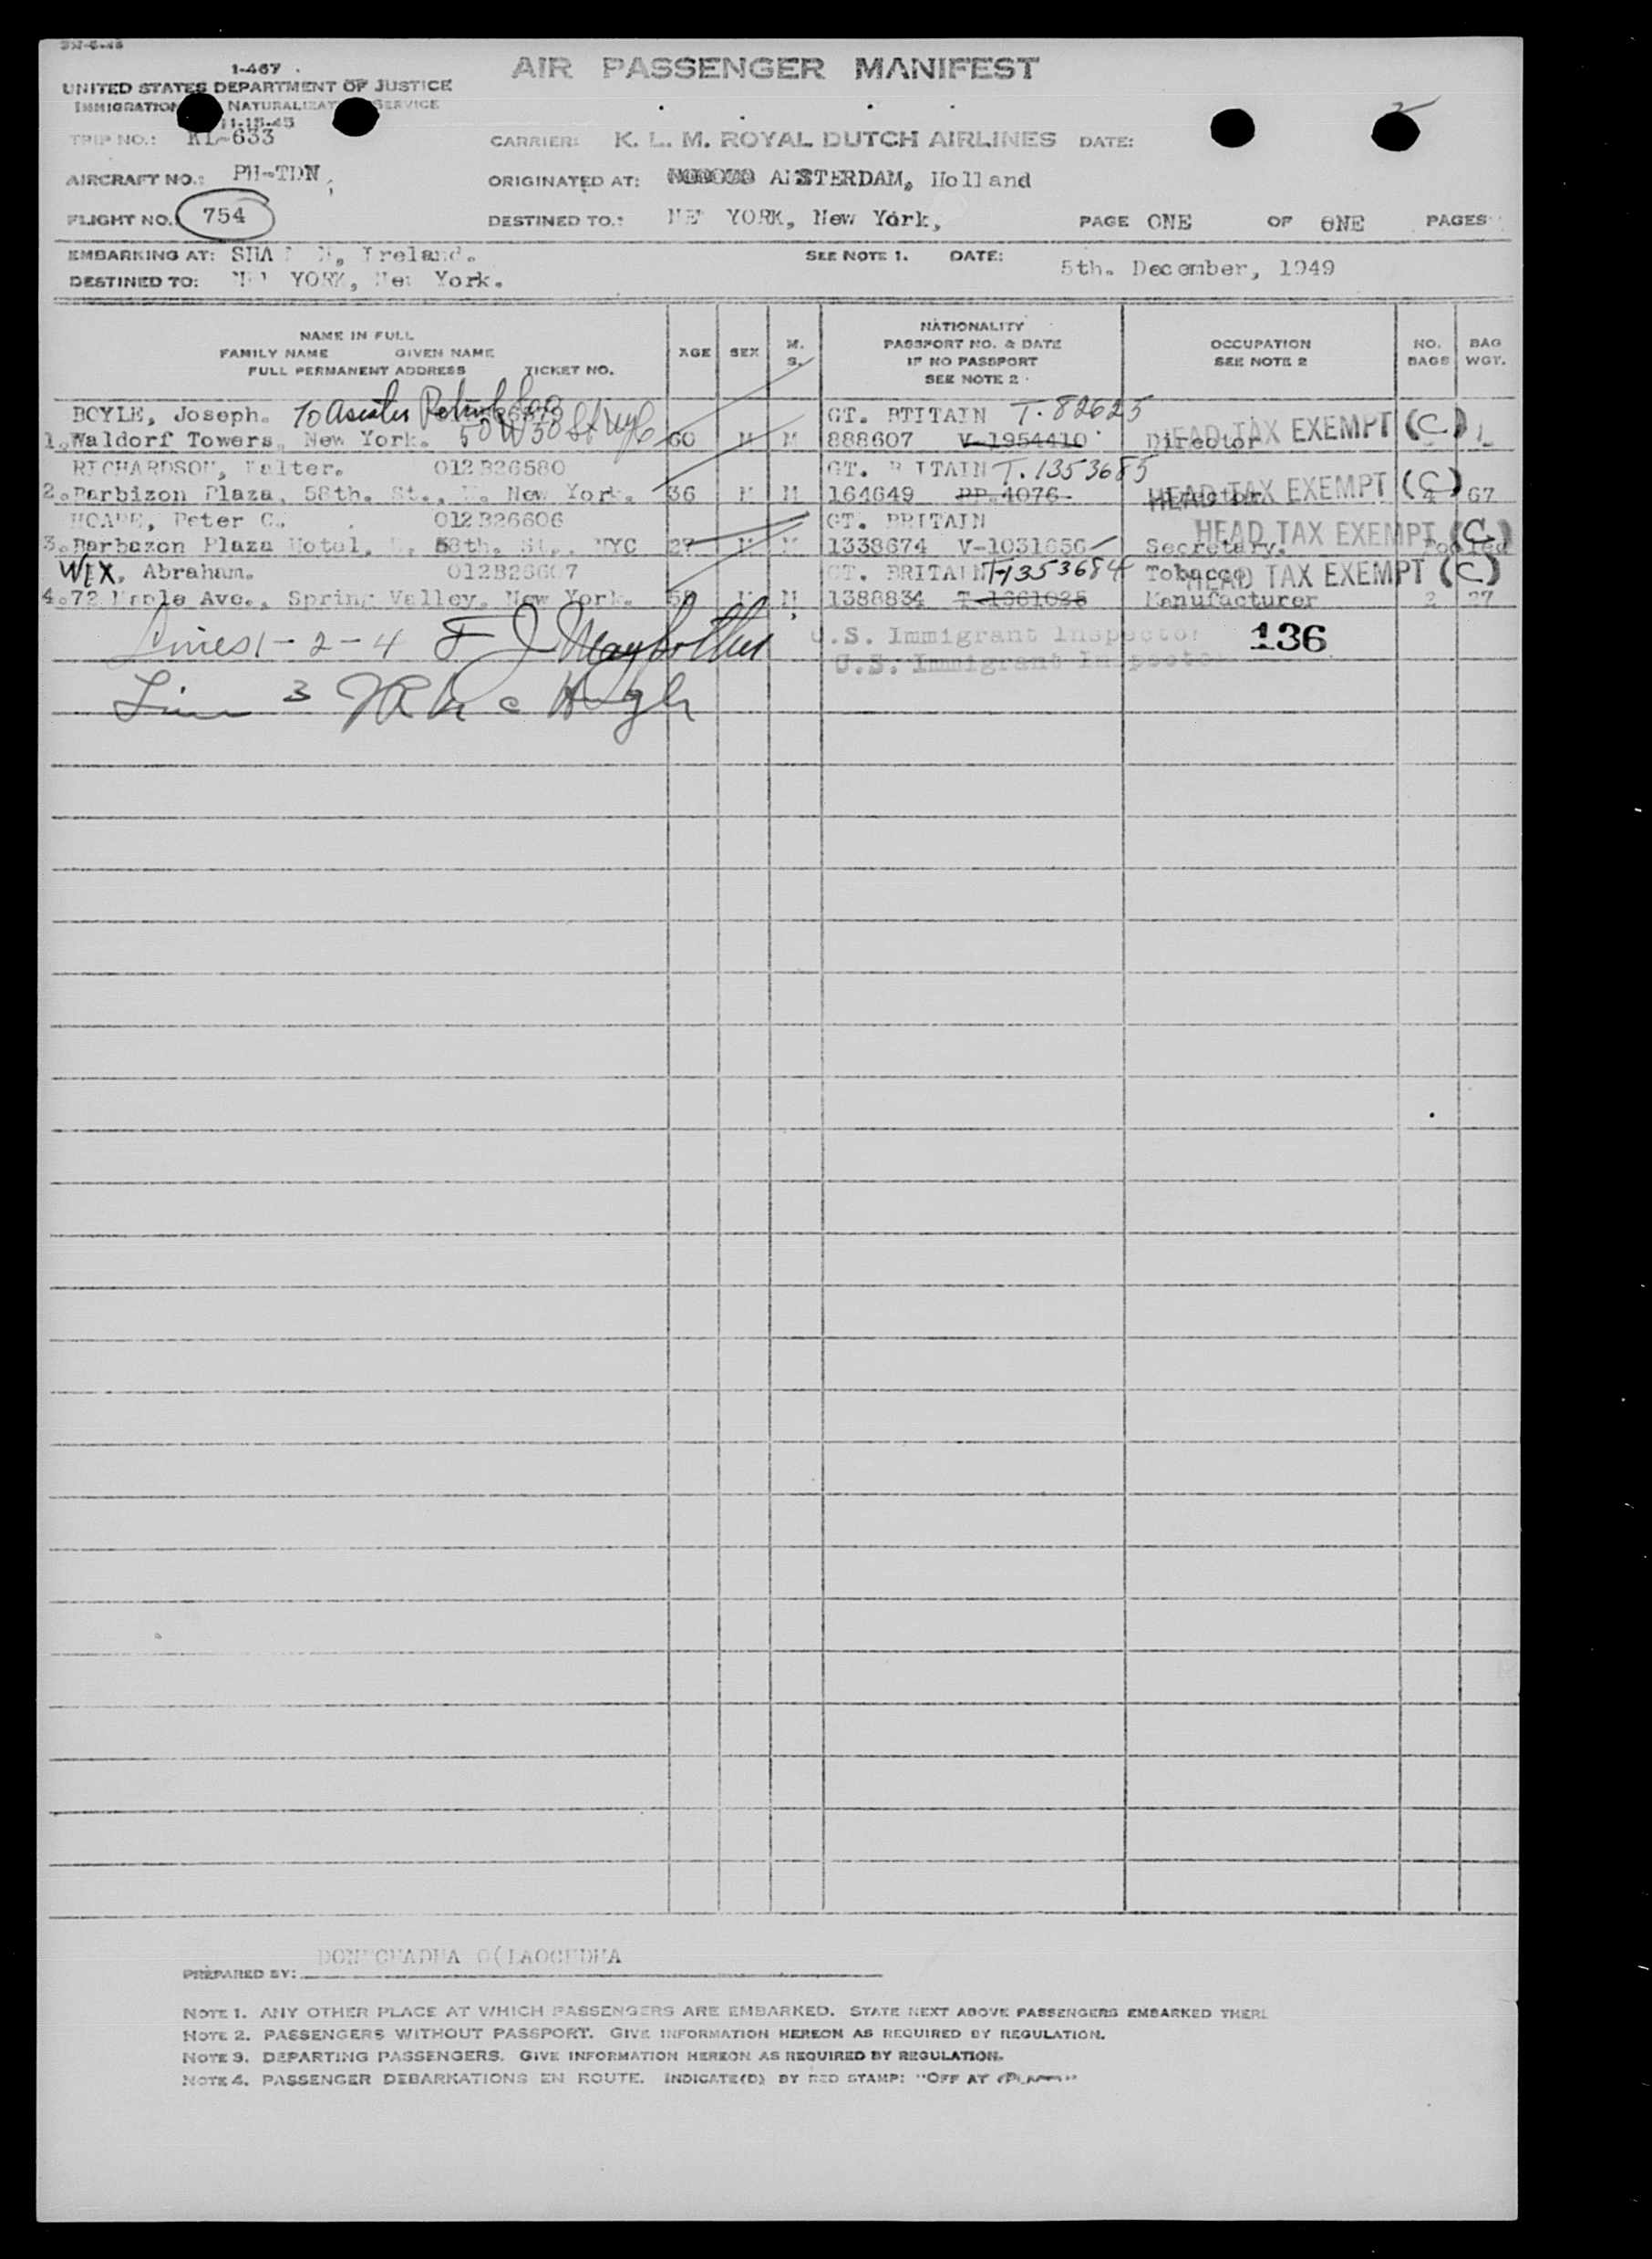 1-467
AIR PASSENGER MANIFEST
UNITED STATES DEPARTMENT OF JUSTICE
IMMIGRATION NATURALIZAT SERVICE
11-15-45
TRIP NO.: KL-633 CARRIER: K. L. M. ROYAL DUTCH AIRLINES DATE:
AIRCRAFT NO.: PH-TDN ORIGINATED AT: AMSTERDAM, Holland
FLIGHT NO. 754 DESTINED TO.: NEW YORK, New York, PAGE ONE OF ONE PAGES
EMBARKING AT: SHA N, Ireland. SEE NOTE 1. DATE: 5th. December, 1949
DESTINED TO: NEW YORK, New York.
NAME IN FULL
FAMILY NAME GIVEN NAME
FULL PERMANENT ADDRESS TICKET NO.
AGE SEX M. S.
NATIONALITY
PASSPORT NO. & DATE
IF NO PASSPORT
SEE NOTE 2
OCCUPATION
SEE NOTE 2
NO. BAGS
BAG WGT.
BOYLE, Joseph. To GT. BTITAIN T.82625
1. Waldorf Towers, New York. 50 W 50 St NYC 60 M M 888607 V-1954410 Director HEAD TAX EXEMPT (C)
RICHARDSON, Walter. 012B26580 GT. BRITAIN T.1353685
2. Barbizon Plaza, 58th. St., W. New York. 36 M M 164649 PP.4076 Director HEAD TAX EXEMPT (C) 4 67
HOARE, Peter C. 012B26606 GT. BRITAIN HEAD TAX EXEMPT (C)
3. Barbazon Plaza Hotel, W. 58th. St., NYC 27 M M 1338674 V-1031656 Secretary. Pooled
WIX, Abraham. 012B26607 GT. BRITAIN T-1353684 Tobacco HEAD TAX EXEMPT (C)
4. 72 Maple Ave., Spring Valley, New York. 58 M M 1388834 T-1361025 Manufacturer 2 27
Lines 1-2-4 F J U.S. Immigrant Inspector 136
U.S. Immigrant Inspector
Line 3
PREPARED BY:
NOTE 1. ANY OTHER PLACE AT WHICH PASSENGERS ARE EMBARKED. STATE NEXT ABOVE PASSENGERS EMBARKED THERE
NOTE 2. PASSENGERS WITHOUT PASSPORT. GIVE INFORMATION HEREON AS REQUIRED BY REGULATION.
NOTE 3. DEPARTING PASSENGERS. GIVE INFORMATION HEREON AS REQUIRED BY REGULATION.
NOTE 4. PASSENGER DEBARKATIONS EN ROUTE. INDICATE(D) BY RED STAMP: "OFF AT (PLACE)"